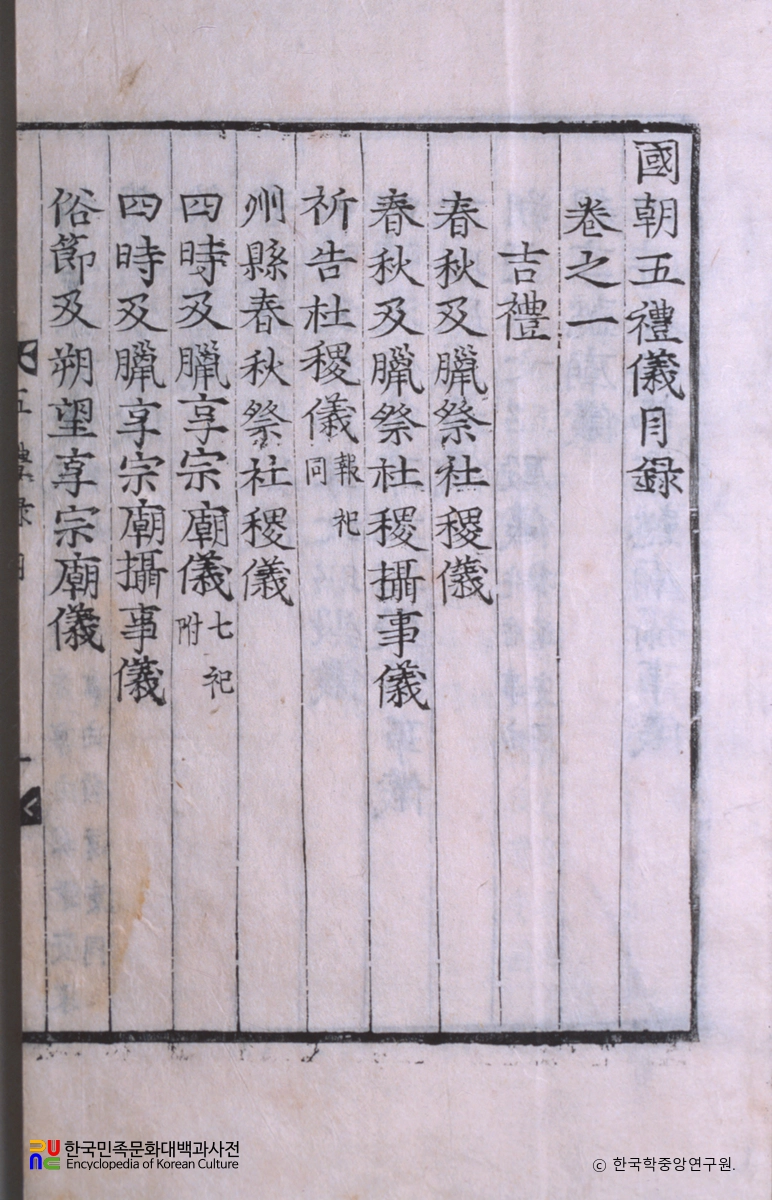 國朝五禮儀目錄
卷之一
吉禮
春秋及臘祭社稷儀
春秋及臘祭社稷攝事儀
祈告社稷儀 報祀同
州縣春秋祭社稷儀
四時及臘享宗廟儀 七祀附
四時及臘享宗廟攝事儀
俗節及朔望享宗廟儀
한국민족문화대백과사전
Encyclopedia of Korean Culture
© 한국학중앙연구원.